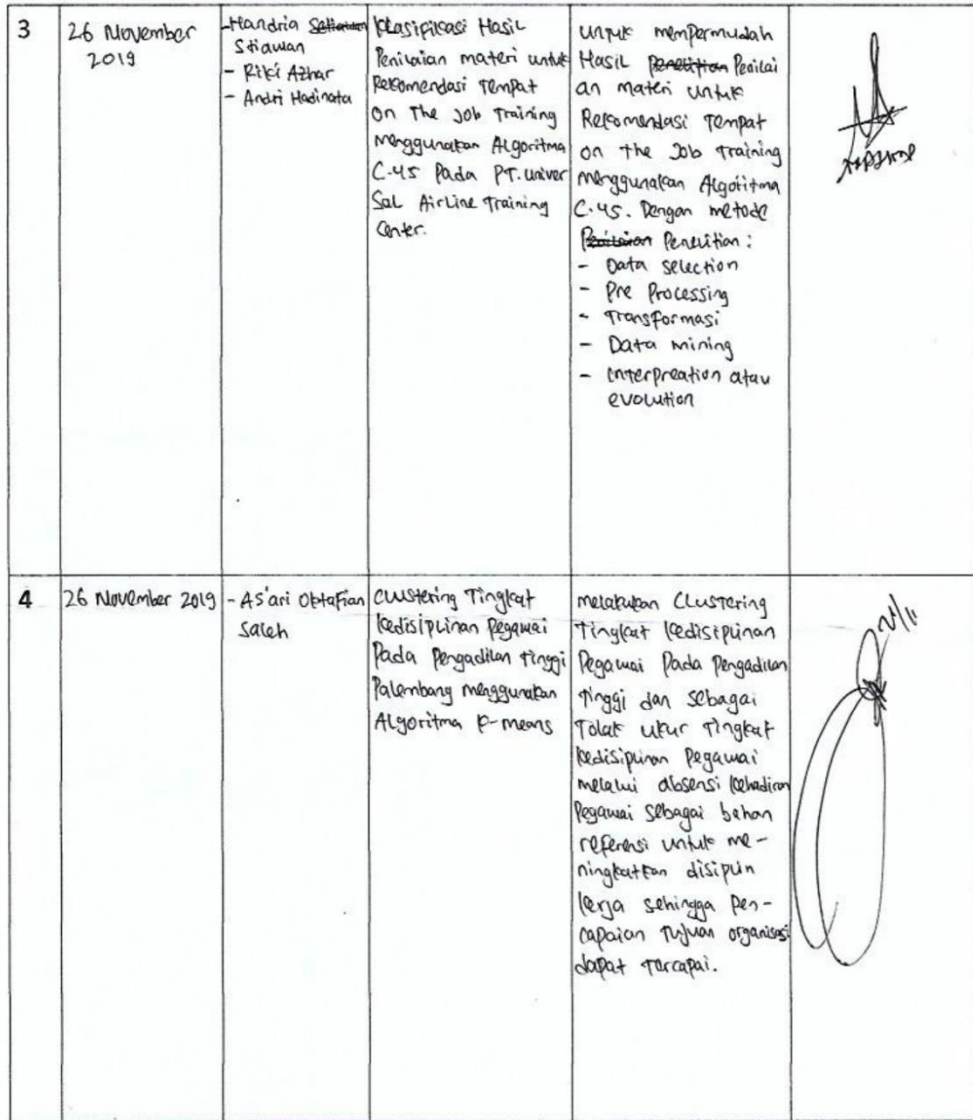 3
26 November
2019
- Handria Setiawan
Stiawan
- Riki Azhar
- Andri Hadinata
Klasifikasi Hasil
Penilaian materi untuk
Rekomendasi Tempat
on The Job Training
Menggunakan Algoritma
C.45 Pada PT. Univer
Sal AirLine Training
Center.
untuk mempermudah
Hasil Penelitian Penilai
an materi untuk
Rekomendasi Tempat
on the Job Training
Menggunakan Algoritma
C.45. Dengan metode
Penilaian Penelitian :
- Data selection
- Pre Processing
- Transformasi
- Data mining
- interpreation atau
evolution
4
26 November 2019
- As'ari Oktafian
Saleh
Clustering Tingkat
Kedisiplinan Pegawai
Pada Pengadilan Tinggi
Palembang menggunakan
Algoritma K-means
melakukan Clustering
Tingkat Kedisiplinan
Pegawai Pada Pengadilan
Tinggi dan sebagai
Tolak ukur Tingkat
Kedisiplinan Pegawai
melalui absensi Kehadiran
Pegawai sebagai bahan
referensi untuk me-
ningkatkan disiplin
Kerja sehingga pen-
capaian Tujuan organisasi
dapat Tercapai.